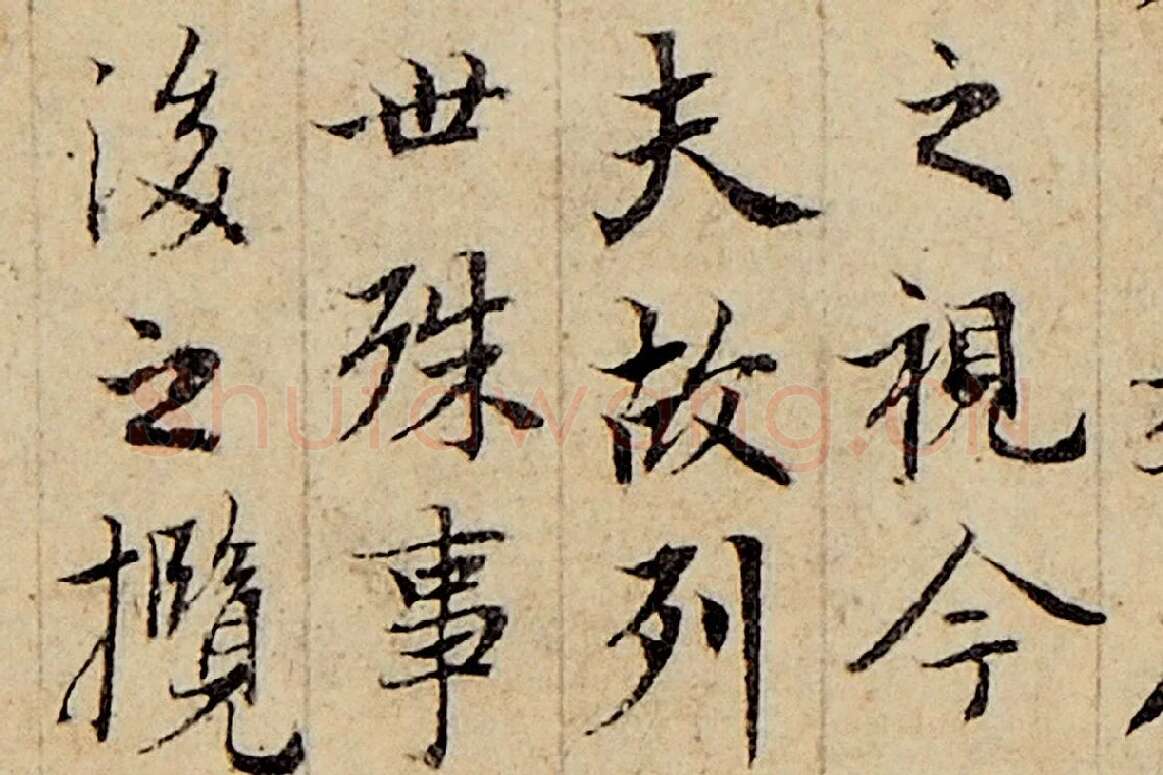 之視今
夫故列
世殊事
後之攬
shufawang.cn